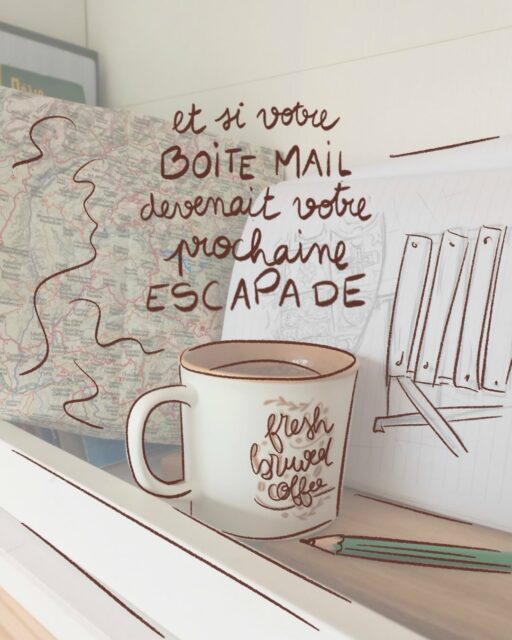 et si votre
BOITE MAIL
devenait votre
prochaine
ESCAPADE
fresh
bruwed
coffee